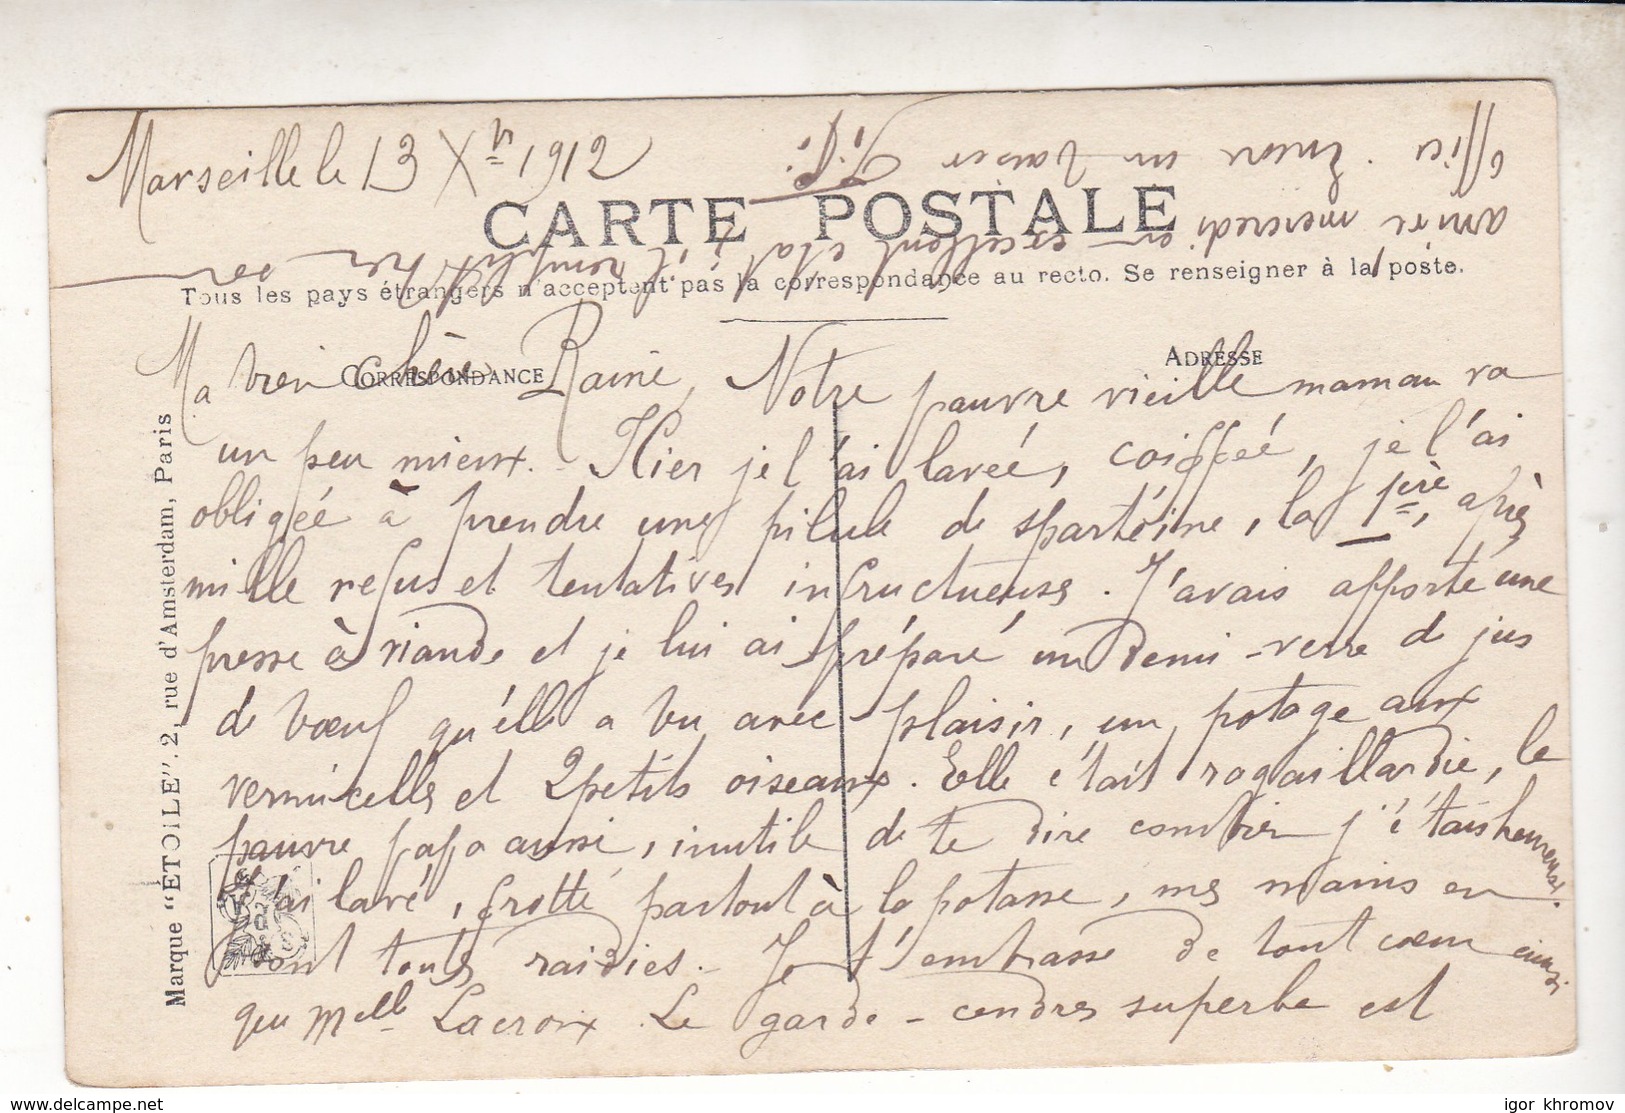 Marseille le 13 Xbre 1912
CARTE POSTALE
Tous les pays étrangers n'acceptent pas la correspondance au recto. Se renseigner à la poste.
CORRESPONDANCE
ADRESSE
Ma bien chère Raine, Notre pauvre vieille maman va
un peu mieux. - Hier je l'ai lavée, coiffée, je l'ai
obligée à prendre une pilule de spartéine, la 1ère, après
mille refus et tentatives infructueuses. J'avais apporté une
presse à viande et je lui ai préparé un demi-verre de jus
de bœuf qu'elle a bu avec plaisir, un potage aux
vermicelles et 2 petits oiseaux. Elle était ragaillardie, le
pauvre papa aussi, inutile de te dire combien j'étais heureuse.
J'ai lavé, frotté partout à la potasse, mes mains en
sont tous raidies. - Je t'embrasse de tout cœur ainsi
que Melle Lacroix. Le garde-cendres superbe est
arrivé mercredi en excellent état, il remplit son
office. Encore un baiser Fifi
Marque "ETOILE". 2, rue d'Amsterdam, Paris
delcampe.net
igor khromov